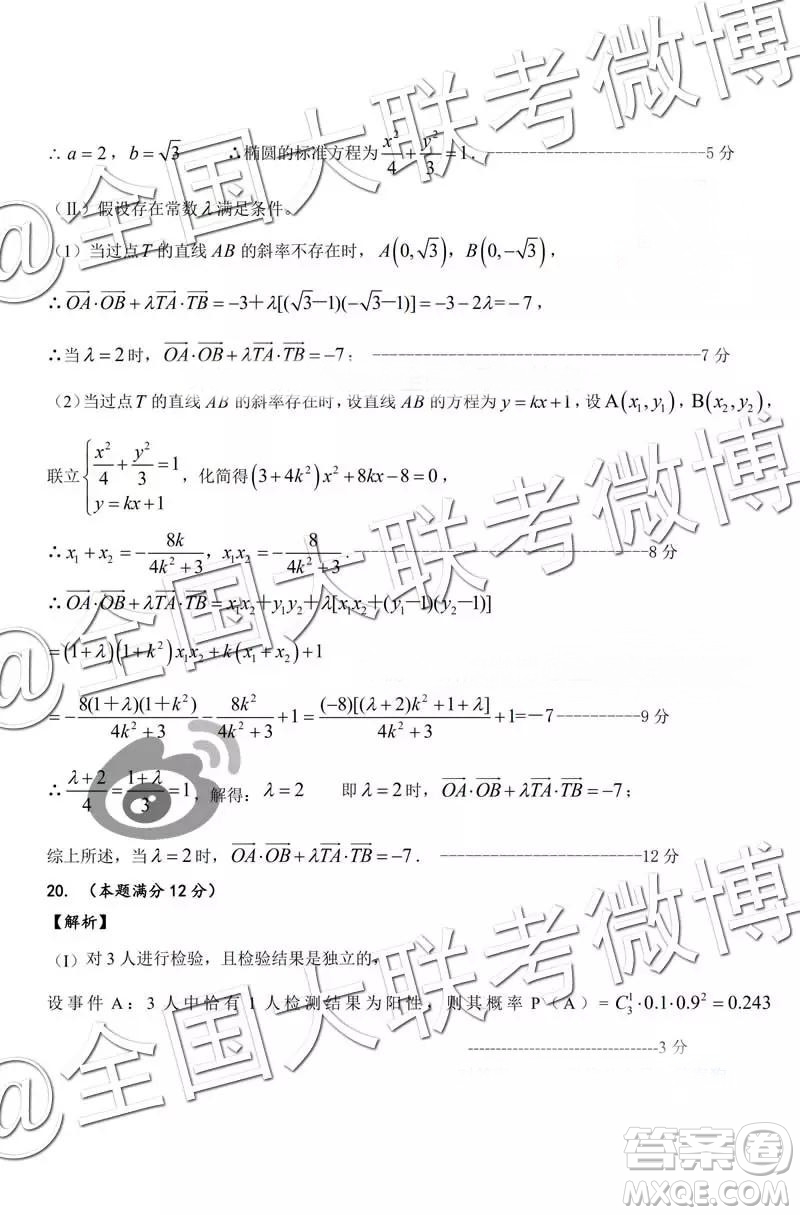 ∴ a = 2，b = √3 ∴椭圆的标准方程为 x²/4 + y²/3 = 1．--------------------------5 分
（Ⅱ）假设存在常数 λ 满足条件。
（1）当过点 T 的直线 AB 的斜率不存在时，A(0,√3)，B(0,−√3)，
∴OA·OB + λTA·TB = −3 + λ[(√3−1)(−√3−1)] = −3−2λ = −7，
∴当 λ = 2 时，OA·OB + λTA·TB = −7；--------------------------7 分
（2）当过点 T 的直线 AB 的斜率存在时，设直线 AB 的方程为 y = kx+1，设 A(x₁,y₁)，B(x₂,y₂)，
联立{x²/4 + y²/3 = 1, y = kx+1，化简得(3+4k²)x²+8kx−8=0，
∴ x₁ + x₂ = −8k/(4k²+3)，x₁x₂ = −8/(4k²+3)．--------------------------8 分
∴OA·OB + λTA·TB = x₁x₂ + y₁y₂ + λ[x₁x₂ + (y₁−1)(y₂−1)]
=(1+λ)(1+k²)x₁x₂ + k(x₁+x₂)+1
=−8(1+λ)(1+k²)/(4k²+3) − 8k²/(4k²+3) + 1 = (−8)[(λ+2)k²+1+λ]/(4k²+3) + 1 = −7----------9 分
∴(λ+2)/4 = (1+λ)/3 = 1，解得：λ = 2 即 λ = 2 时，OA·OB + λTA·TB = −7；
综上所述，当 λ = 2 时，OA·OB + λTA·TB = −7．--------------------------12 分
20. （本题满分 12 分）
【解析】
（I）对 3 人进行检验，且检验结果是独立的，
设事件 A：3 人中恰有 1 人检测结果为阳性，则其概率 P（A）= C₃¹·0.1·0.9² = 0.243
--------------------------3 分
@全国大联考微博
@全国大联考微博
@全国大联考微博
答案卷
MXQE.COM